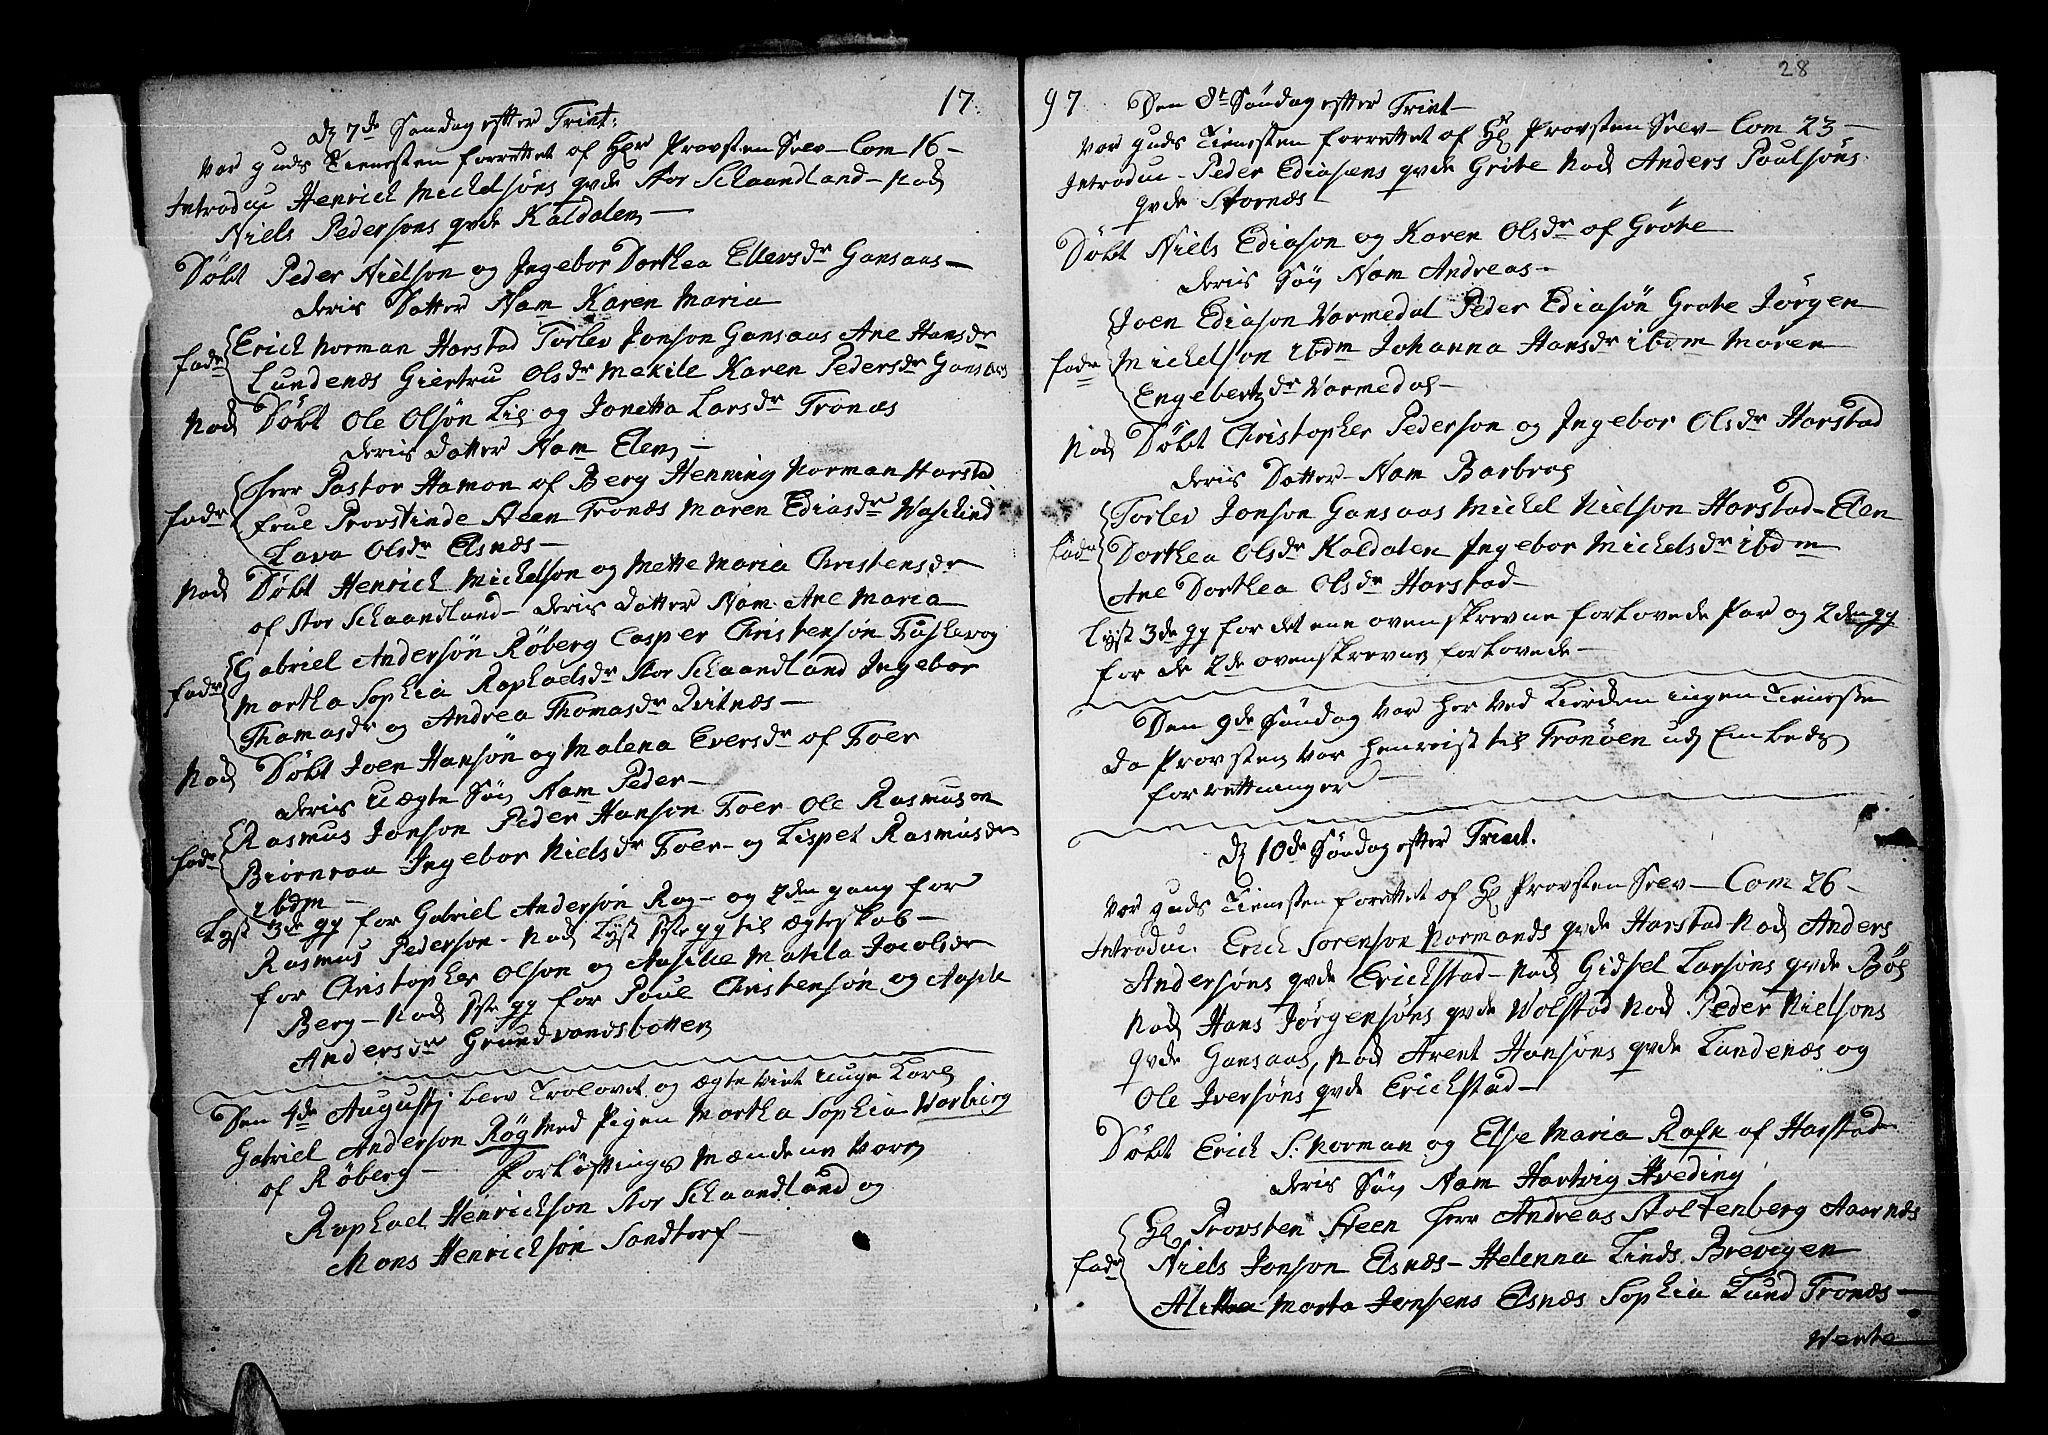 17
D 7de Søndag efter Trint:
var guds Tienesten forrettet af Hr Provsten Selv - Com 16 -
Introduc Henrich Michelsøns qvde Stor Schaandland - Nock
Niels Pedersøns qvde Kaldalen -
Døbt Peder Nielson og Ingebor Dorthea Ellevsdr Gansaas -
deris Datter Nam Karen Maria
fadr Erich Norman Harstad Torlev Jonson Gansaas Ane Hansdr
Lundenæs Giertru Olsdr Mekile Karen Pedersdr Gansaas
Nock Døbt Ole Olsøn Lie og Jonetta Larsdr Tronæs
deris datter Nam Elen -
Herr Pastor Hamon af Berg Henning Norman Harstad
fadr Frue Provstinde Steen Tronæs Maren Ediasdr Waschind
Lava Olsdr Elsnæs -
Nock Døbt Henrich Michelson og Mette Maria Christensdr
af Stor Schaandland - deris datter Nam Ane Maria
Gabriel Andersøn Røberg Casper Christensøn Fuskevog
fadr Martha Sophia Raphaelsdr Stor Schaandland Ingebor
Thomasdr og Andrea Thomasdr Qvitnæs -
Nock Døbt Joen Hansøn og Malena Eversdr af Foer
deris uægte Søn Nam Peder -
Rasmus Jonson Peder Hanson Foer Ole Rasmuson
fadr Biørnraa Ingebor Nielsdr Foer - og Lispet Rasmusdr
ibdm -
Lyst 3de gg for Gabriel Andersøn Røg - og 2den gang for
Rasmus Pederson - Nock Lyst 1ste gg til ægteskab -
for Christopher Olson og Aasille Matila Jacobsdr
Berg - Nock 1ste gg for Poul Christensøn og Aaste
Andersdr Grundvandsbotten
Den 4de Augustj blev Trolovet og ægteviet unge Karl
Gabriel Anderson Røg Med Pigen Martha Sophia Warberg
af Røberg - Forløftnings Mændene vare
Raphael Henrichsøn Stor Schaandland og
Mons Henrichsøn Sandtorf -
28
97 Den 8t Søndag efter Trint -
var guds Tienesten forrettet af Hr Provsten Selv - Com 23 -
Introduc - Peder Ediasens qvde Grøte Nock Anders Poulsøns
qvde Stornæs
Døbt Niels Ediason og Karen Olsdr af Grøte
deris Søn Nam Andreas -
Joen Ediason Varmedal Peder Ediasøn Grøte Jørgen
fadr Michelson ibdm Johanna Hansdr ibdm Maren
Engebertzdr Varmedal -
Nock Døbt Christopher Pederson og Ingebor Olsdr Harstad
deris Datter - Nam Barbroe
Torlev Jonson Gansaas Michel Nielson Harstad - Elen
fadr Dorthea Olsdr Kaldalen Ingebor Michelsdr ibdm
Ane Dorthea Olsdr Harstad -
Lyst 3de gg for det ene ovenskrevne forlovede Par og 2den gg
for de 2de ovenskrevne forlovede -
Den 9de Søndag var her Ved Kierken ingen Tieneste
da Provsten var henreist til Tronøen ud j Embeds
forrettninger -
D 10de Søndag efter Trint.
var guds Tienesten forrettet af Hr Provsten Selv - Com 26 -
Introduc. Erich Sørenson Normands qvde Harstad Nock Anders
Andersøns qvde Erichstad - Nock Gidsel Larsøns qvde Bøe
Nock Hans Jørgensøns qvde Wolstad Nock Peder Nielsons
qvde Gansaas, Nock Arent Hansøns qvde Lundenæs og
Ole Iversøns qvde Erichstad -
Døbt Erich S: Norman og Else Maria Rafn af Harstad
deris Søn Nam Hartvig Hveding
Hr Provsten Steen Herr Andreas Stoltenberg Aarnæs
fadr Niels Jonson Elsnæs - Helenna Linds Brevigen
Marta Jonsens Elsnæs Sophia Lund Tronæs -
Verte